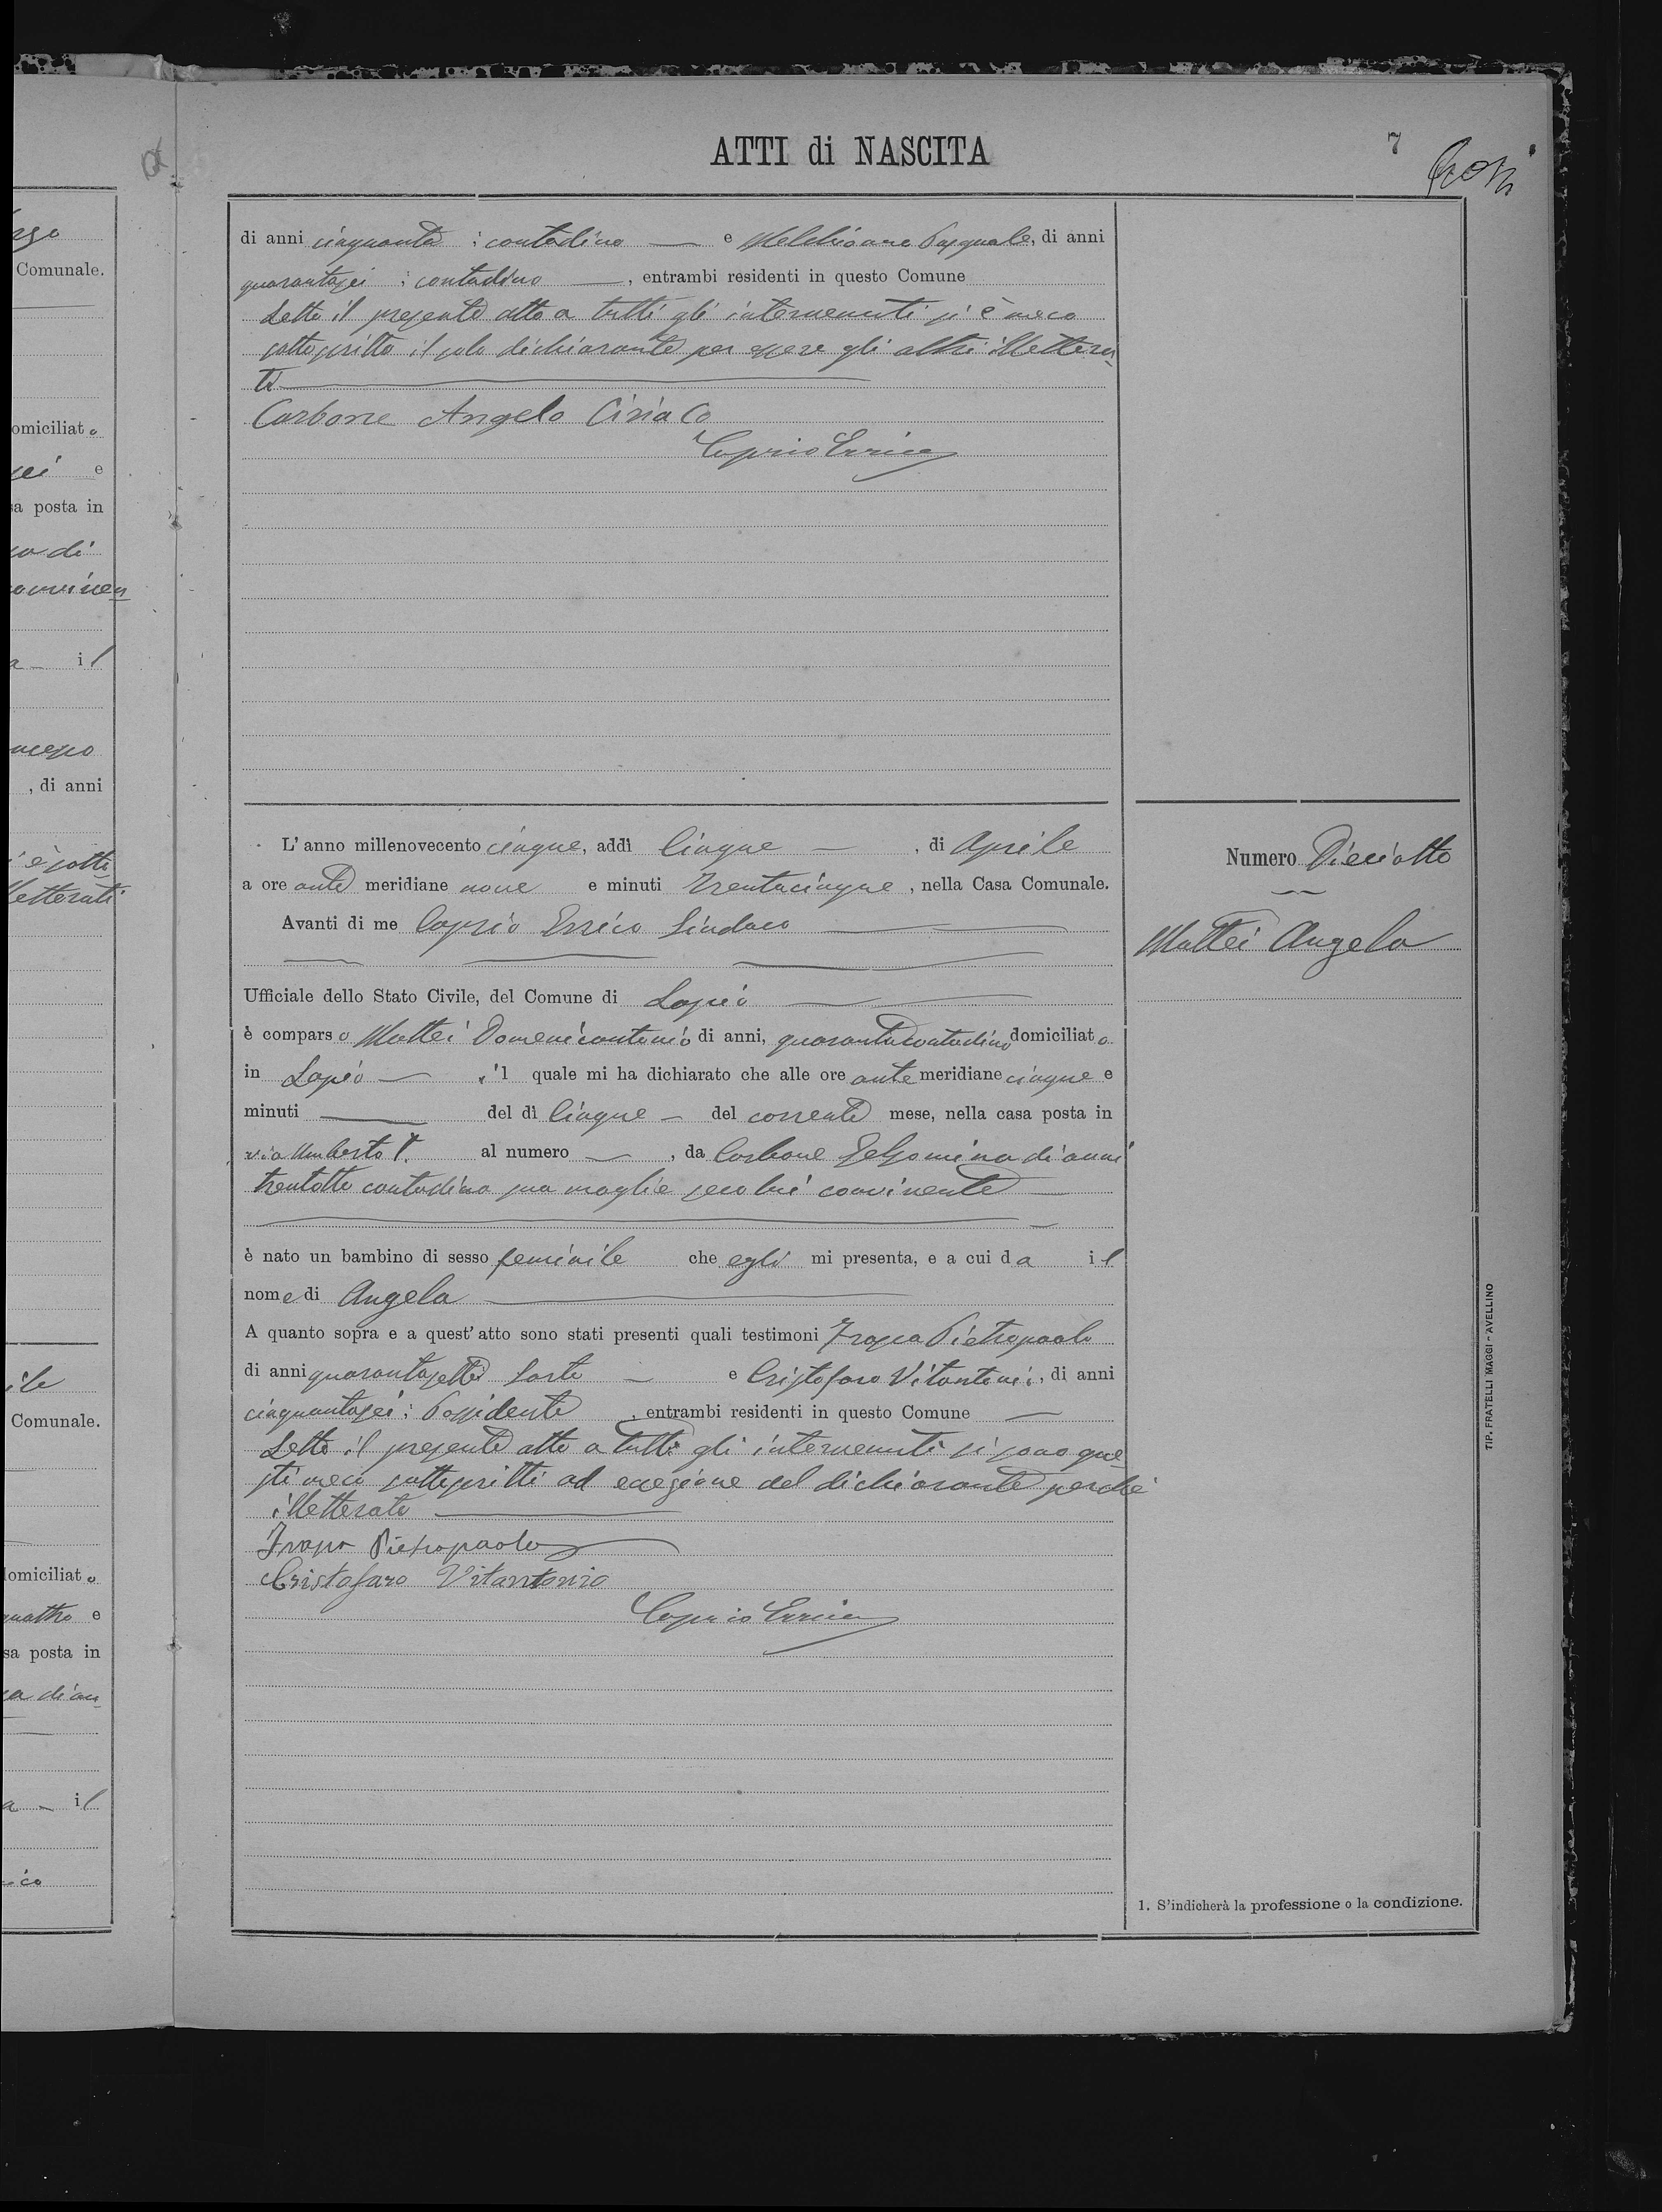 ATTI di NASCITA
7
di anni cinquanta : contadino — e Melchionne Pasquale, di anni
quarantasei : contadino —, entrambi residenti in questo Comune
Letto il presente atto a tutti gli intervenuti si è meco
sottoscritto il solo dichiarante per essere gli altri illettera
ti
Carbone Angelo Ciriaco
Caprio Errico
L'anno millenovecento cinque, addì Cinque — , di Aprile
a ore ante meridiane nove e minuti trentacinque, nella Casa Comunale.
Avanti di me Caprio Errico Sindaco
Ufficiale dello Stato Civile, del Comune di Lapio
è comparso Mattei Domenicantonio di anni, quaranta contadino domiciliato
in Lapio — , il quale mi ha dichiarato che alle ore ante meridiane cinque e
minuti — del dì Cinque — del corrente mese, nella casa posta in
via Umberto I°. al numero — , da Carbone Gelsomina di anni
trentotto contadina sua moglie seco lui convivente
è nato un bambino di sesso feminile che egli mi presenta, e a cui da il
nome di Angela
A quanto sopra e a quest'atto sono stati presenti quali testimoni Trapa Pietropaolo
di anni quarantasette Sarto — e Cristofaro Vitantonio, di anni
cinquantasei : Possidente , entrambi residenti in questo Comune —
Letto il presente atto a tutti gli intervenuti si sono que
sti meco sottoscritti ad eccezione del dichiarante perché
illetterato
Pietropaolo
Cristofaro Vitantonio
Caprio Errico
Numero Dieciotto
Mattei Angela
1. S'indicherà la professione o la condizione.
TIP. FRATELLI MAGGI - AVELLINO
Comunale.
omiciliato
sei e
sa posta in
a di
conviven
il
, di anni
è sotto
lletterati
ile
Comunale.
domiciliato
quattro e
sa posta in
a di an
a — il
ico